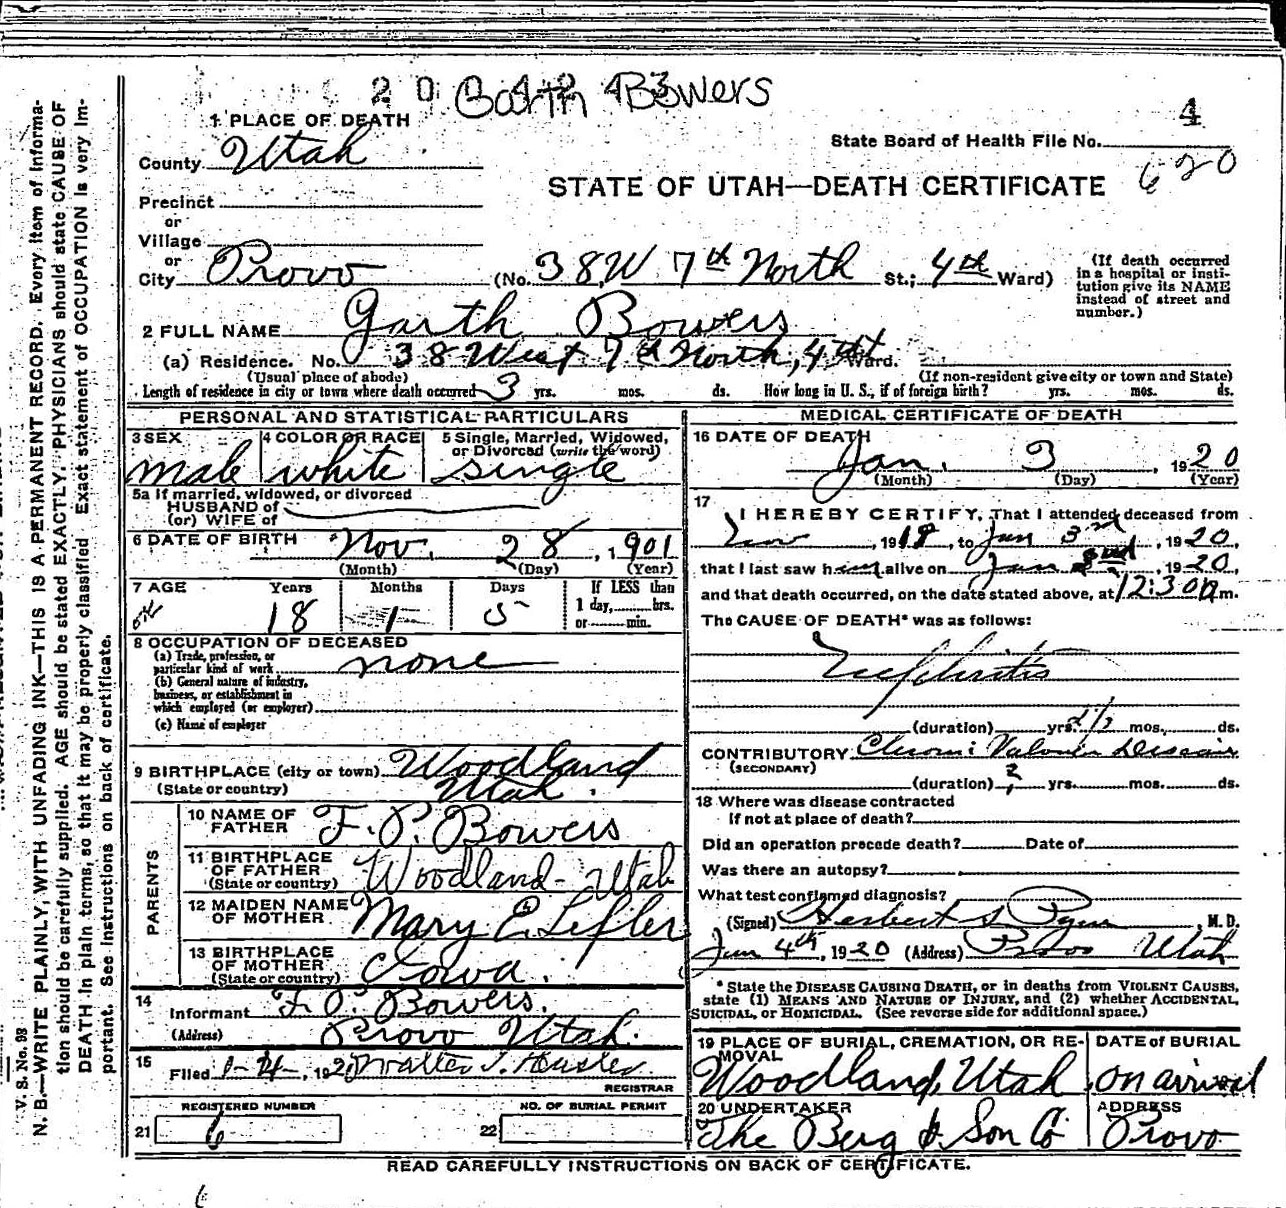 2 0 0 4 2 4 3
Garth Bowers
4
1 PLACE OF DEATH
County Utah
State Board of Health File No.
620
STATE OF UTAH—DEATH CERTIFICATE
Precinct
or
Village
or
City Provo (No. 38 W 7th North St.; 4th Ward)
(If death occurred in a hospital or institution give its NAME instead of street and number.)
2 FULL NAME Garth Bowers
(a) Residence. No. 38 West 7th North, 4th Ward.
(Usual place of abode) (If non-resident give city or town and State)
Length of residence in city or town where death occurred 3 yrs. mos. ds. How long in U. S., if of foreign birth? yrs. mos. ds.
PERSONAL AND STATISTICAL PARTICULARS
3 SEX 4 COLOR OR RACE 5 Single, Married, Widowed, or Divorced (write the word)
male white single
5a If married, widowed, or divorced
HUSBAND of
(or) WIFE of
6 DATE OF BIRTH Nov. 28, 1901
(Month) (Day) (Year)
7 AGE Years Months Days If LESS than
1 day, hrs.
or min.
18 1 5
8 OCCUPATION OF DECEASED
(a) Trade, profession, or
particular kind of work none
(b) General nature of industry,
business, or establishment in
which employed (or employer)
(c) Name of employer
9 BIRTHPLACE (city or town) Woodland
(State or country) Utah.
PARENTS
10 NAME OF
FATHER F. P. Bowers
11 BIRTHPLACE
OF FATHER Woodland - Utah
(State or country)
12 MAIDEN NAME
OF MOTHER Mary E. Lefler
13 BIRTHPLACE
OF MOTHER Iowa.
(State or country)
14
Informant F. P. Bowers.
(Address) Provo Utah.
15
Filed 1-4-, 1920 Walter
REGISTRAR
REGISTERED NUMBER NO. OF BURIAL PERMIT
21 6 22
MEDICAL CERTIFICATE OF DEATH
16 DATE OF DEATH
Jan. 3, 1920
(Month) (Day) (Year)
17
I HEREBY CERTIFY, That I attended deceased from
Nov, 1919, to Jan 3rd, 1920,
that I last saw him alive on Jan, 1920,
and that death occurred, on the date stated above, at 12:30 m.
The CAUSE OF DEATH* was as follows:
Nephritis
(duration) yrs. mos. ds.
CONTRIBUTORY Chronic Valvular Disease
(SECONDARY)
(duration) 2 yrs. mos. ds.
18 Where was disease contracted
If not at place of death?
Did an operation precede death? Date of
Was there an autopsy?
What test confirmed diagnosis?
(Signed) Herbert S. Pyne, M. D.
Jan 4th, 1920 (Address) Provo Utah
* State the DISEASE CAUSING DEATH, or in deaths from VIOLENT CAUSES,
state (1) MEANS AND NATURE OF INJURY, and (2) whether ACCIDENTAL,
SUICIDAL, or HOMICIDAL. (See reverse side for additional space.)
19 PLACE OF BURIAL, CREMATION, OR RE-
MOVAL DATE of BURIAL
Woodland, Utah on arrival
20 UNDERTAKER ADDRESS
The Berg & Son Co Provo
READ CAREFULLY INSTRUCTIONS ON BACK OF CERTIFICATE.
V. S. No. 98
N. B.—WRITE PLAINLY, WITH UNFADING INK—THIS IS A PERMANENT RECORD. Every item of informa-
tion should be carefully supplied. AGE should be stated EXACTLY. PHYSICIANS should state CAUSE OF
DEATH in plain terms, so that it may be properly classified. Exact statement of OCCUPATION is very im-
portant. See instructions on back of certificate.